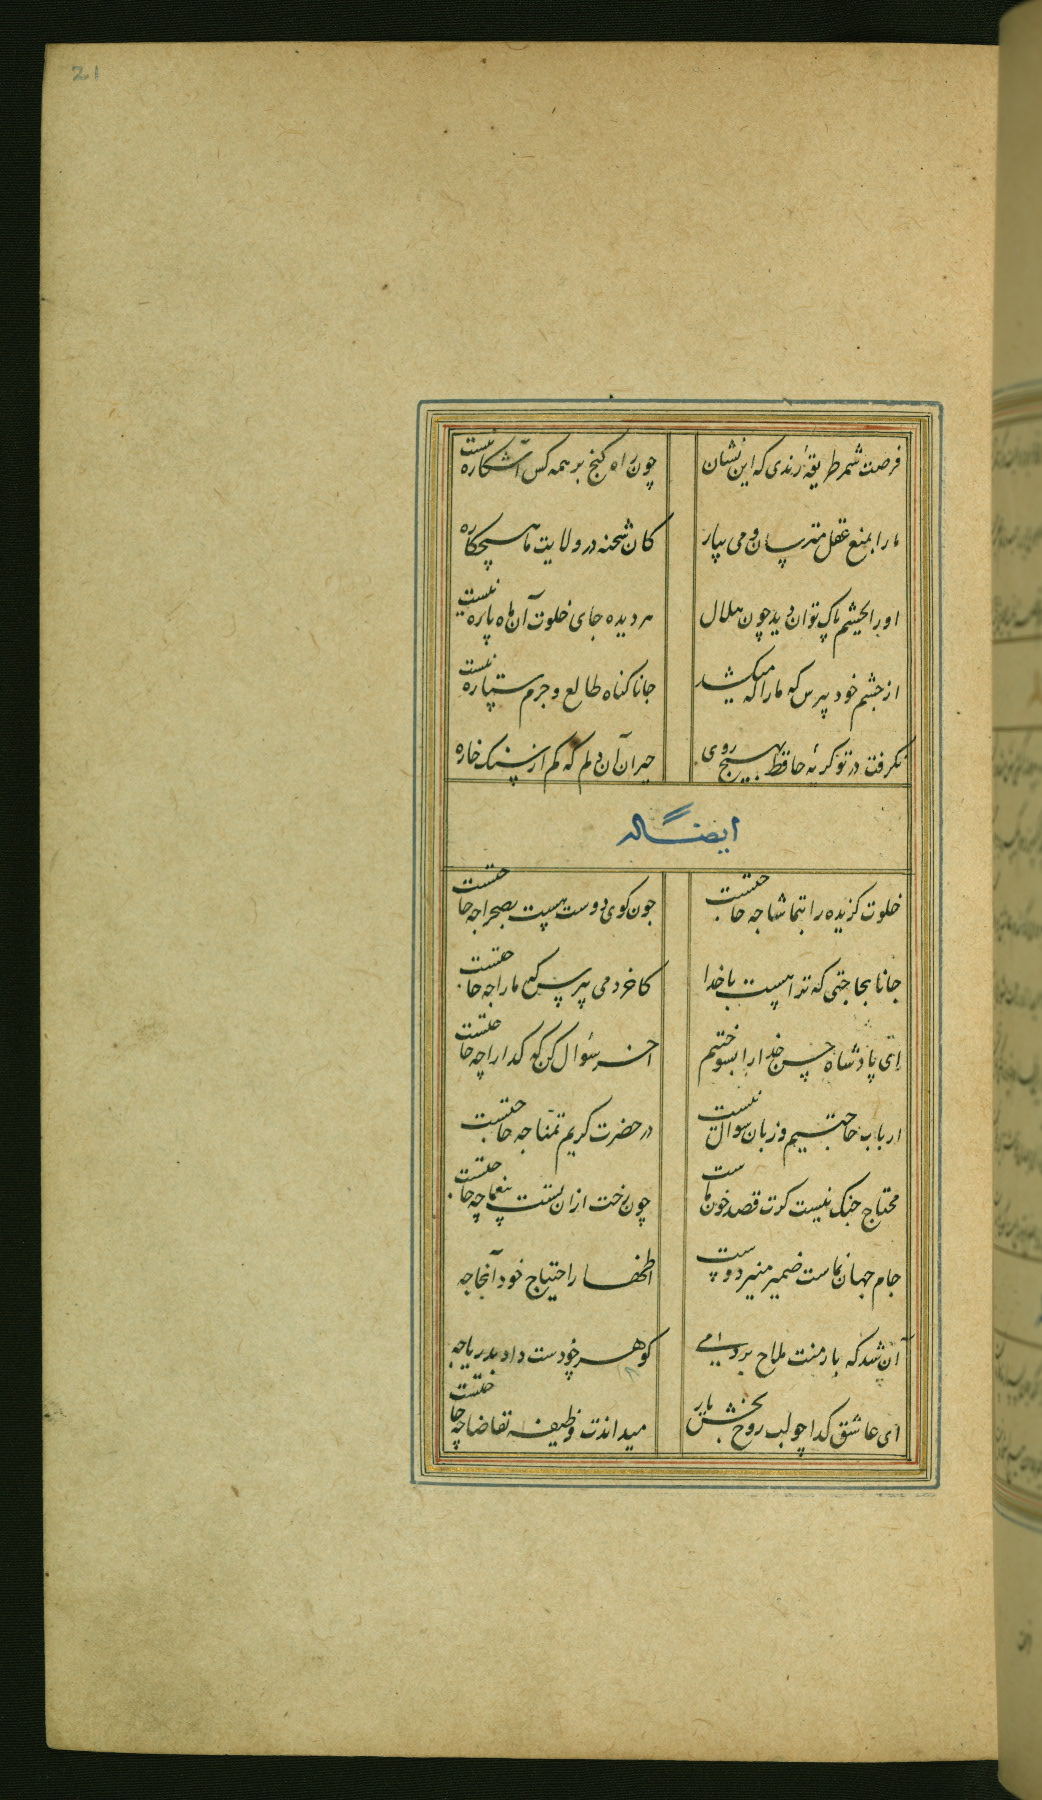 21
فرصت شمر طریقهٔ رندی که این نشان چون راه کنج بر همه کس آشکاره نیست
ما را بمنع عقل مترسان و می بیار کان شحنه در ولایت ما هیچکاره
او را بچشم پاک توان دید چون هلال هر دیده جای خلوت آن ماه پاره نیست
از چشم خود بپرس که ما را که میکشد جانا کناه طالع و جرم ستاره نیست
نکرفت در تو کریهٔ حافظ بهیچ روی حیران آن دلم که کم از سنک خاره
ایضاً له
خلوت کزیده را بتماشا چه حاجتست چون کوی دوست هست بصحرا چه حاجتست
جانا بحاجتی که ترا هست با خدا کاخر دمی بپرس که ما را چه حاجتست
ای پادشاه حسن خدا را بسوختیم آخر سؤال کن که کدا را چه حاجتست
ارباب حاجتیم و زبان سوال نیست در حضرت کریم تمنا چه حاجتست
محتاج جنک نیست کرت قصد خون ماست چون رخت از آن تست بیغما چه حاجتست
جام جهان نماست ضمیر منیر دوست اظهار احتیاج خود آنجا چه
آن شد که بار منت ملاح بردمی کوهر چو دست داد بدریا چه
ای عاشق کدا چو لب روح بخش یار میداندت وظیفه تقاضا چه حاجتست